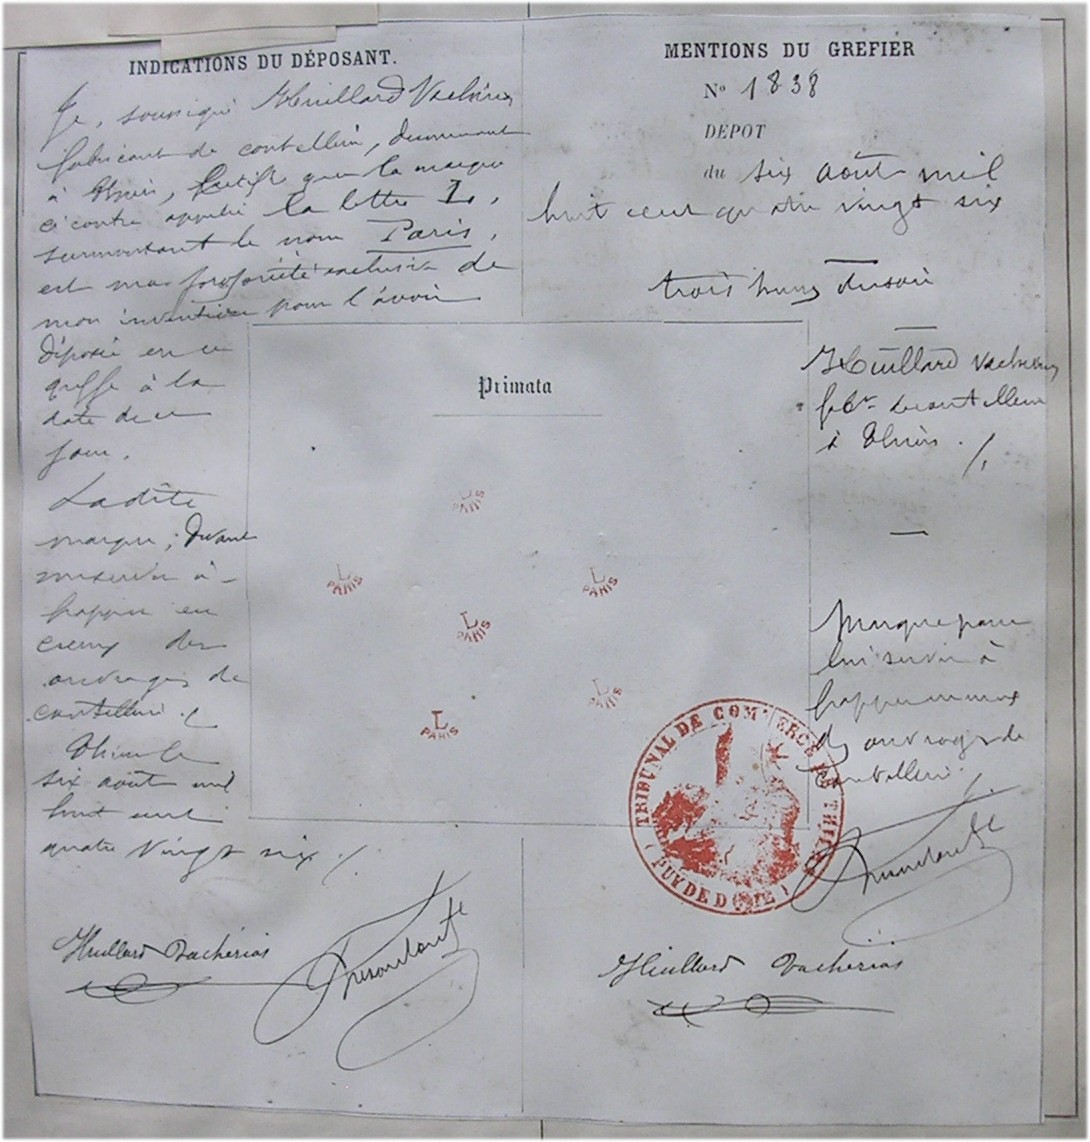 INDICATIONS DU DÉPOSANT.
Je, soussigné Huillard Vachérias
fabricant de coutellerie, demeurant
à Thiers, certifie que la marque
ci contre appelée la lettre L,
surmontant le nom Paris,
est ma propriété exclusive de
mon invention pour l'avoir
déposée en ce
greffe à la
date de ce
jour.
Ladite
marque, devant
me servir à
frapper en
creux des
ouvrages de
coutellerie.
Thiers le
six août mil
huit cent
quatre vingt six
Huillard Vachérias
MENTIONS DU GREFIER
No 1838
DÉPOT
du six août mil
huit cent quatre vingt six
trois heures du soir
Huillard Vachérias
fabt de coutellerie
à Thiers.
Marque pour
lui servir à
frapper en creux
des ouvrages de
coutellerie.
Huillard Vachérias
Primata
L
PARIS
L
PARIS
L
PARIS
L
PARIS
L
PARIS
L
PARIS
TRIBUNAL DE COMMERCE DE THIERS
(PUY DE DOME)